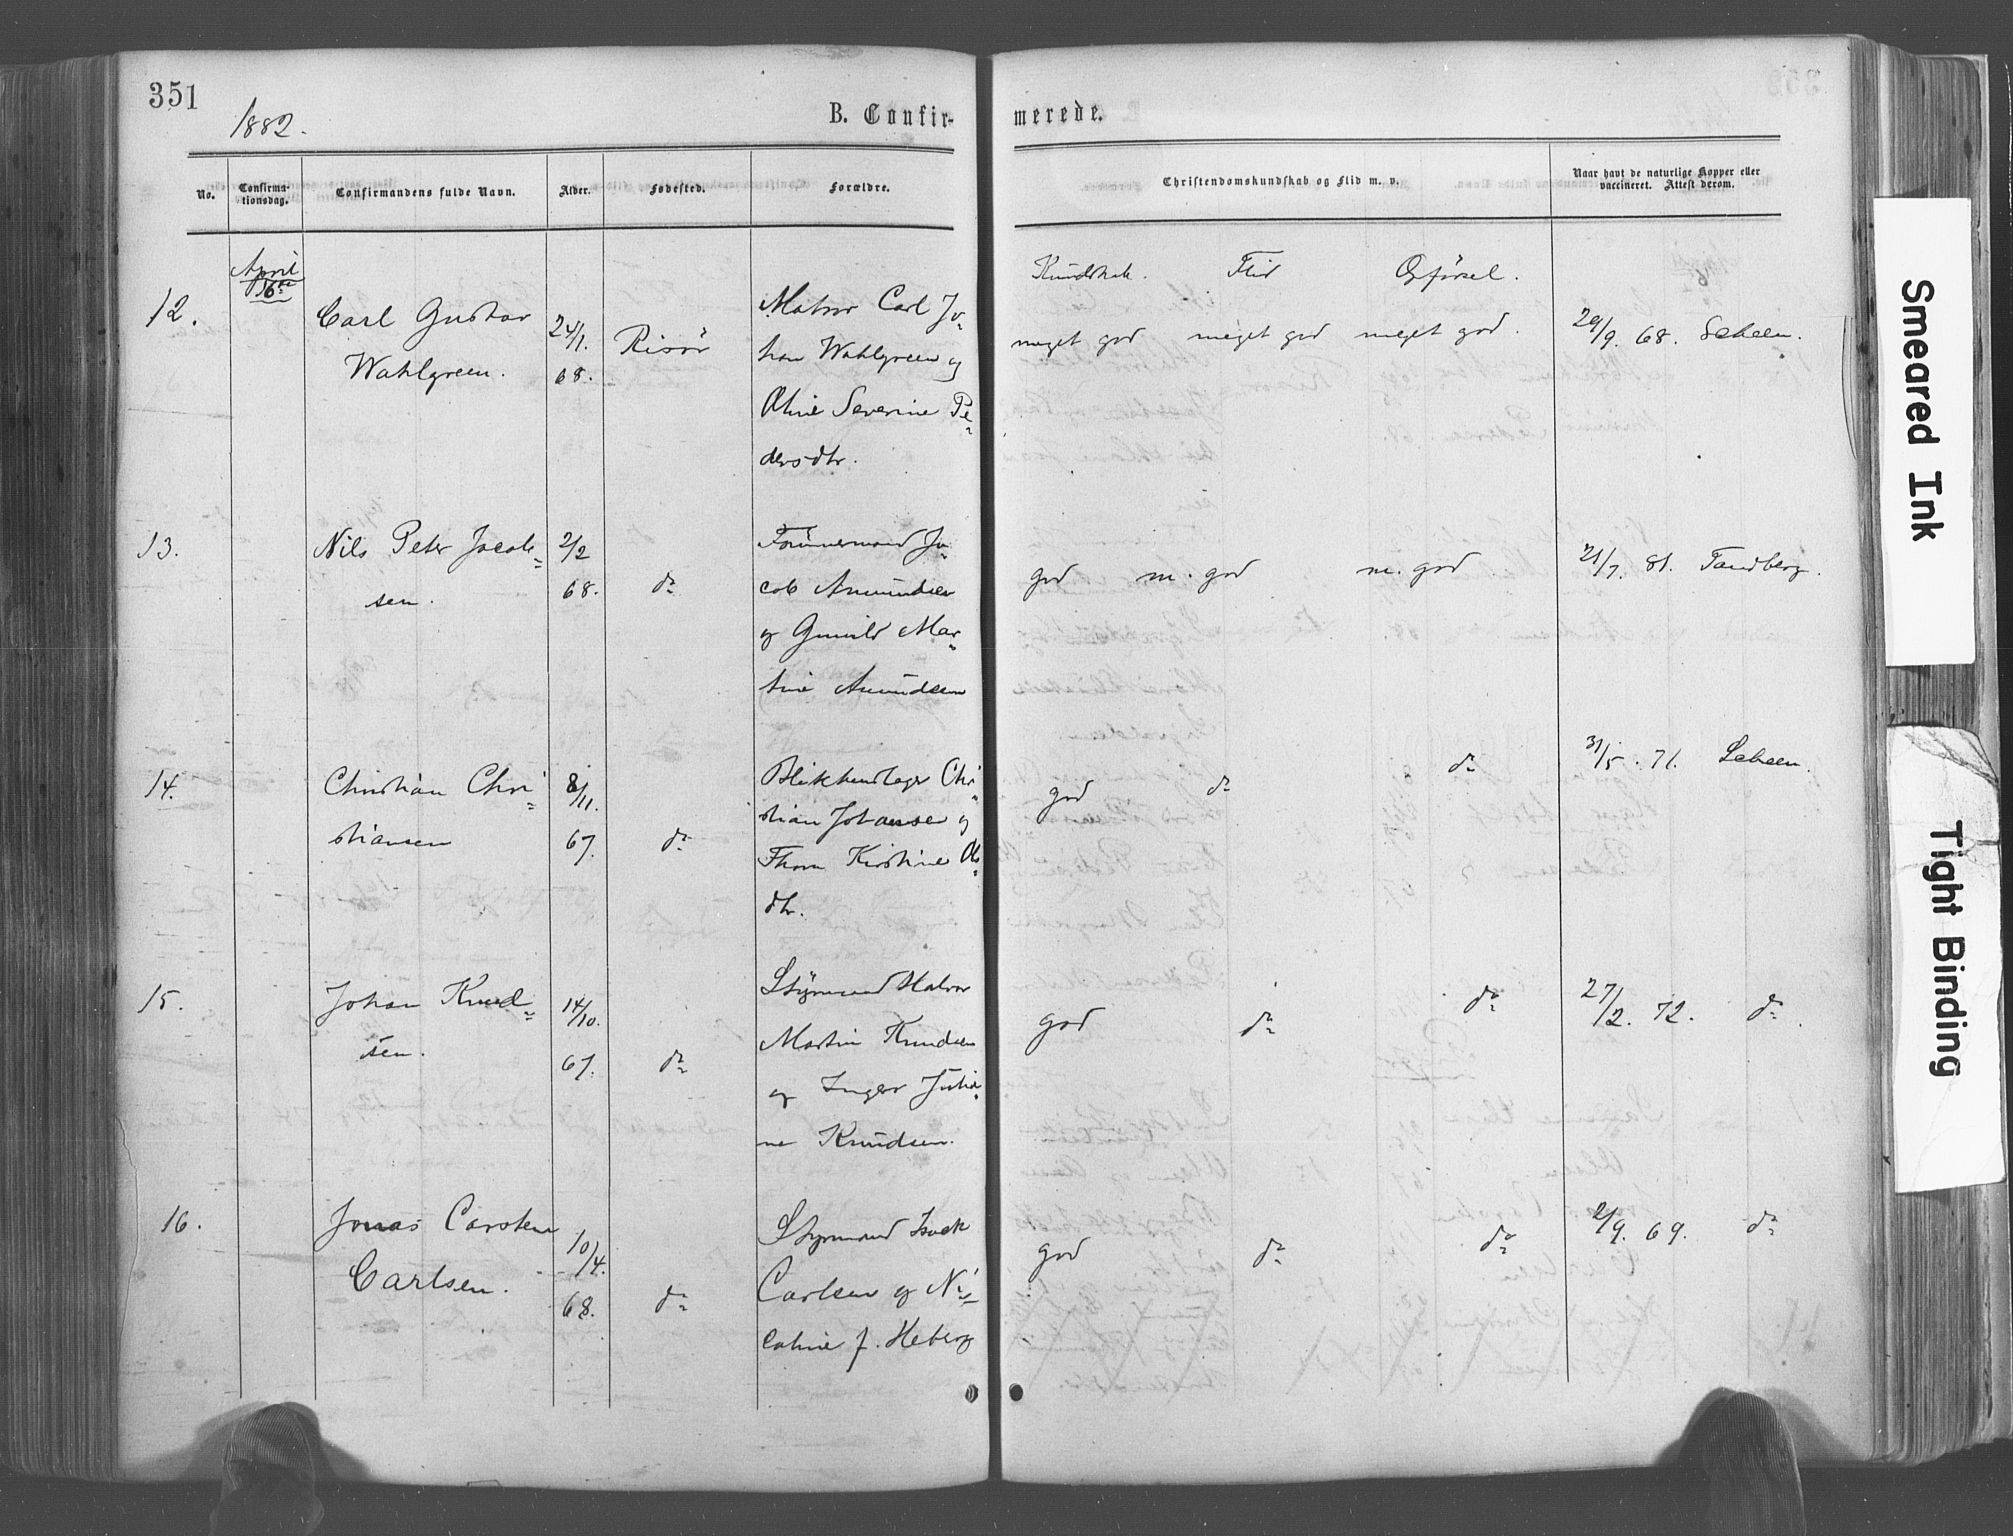 351
1882.
B. Confirmerede.
No.
Confirmationsdag.
Confirmandens fulde Navn.
Alder.
Fødested.
Forældre.
Christendomskundskab og Flid m. v.
Naar havt de naturlige Kopper eller
vaccineret. Attest derom.
April
16de
Kundskab. Flid Opførsel.
12.
Carl Gustav
Wahlgreen.
24/1.
68.
Risör
Matros Carl Jo-
han Wahlgreen og
Oline Severine Pe-
dersdtr.
meget god meget god meget god.
29/9. 68. Scheen.
13.
Nils Peter Jacob-
sen.
2/2
68.
do
Tömmermand Ja-
cob Amundsen
og Gunild Mar-
tine Amundsen
god m. god m. god.
21/7. 81. Tandberg.
14.
Christian Chri-
stiansen
8/11.
67.
do
Blikkenslager Chri-
stian Johansen og
Thora Kirstine Ols-
dtr.
god do do
31/5. 71. Scheen.
15.
Johan Knud-
sen.
14/10.
67.
do
Styrmand Halvor
Martin Knudsen
og Inger Julia-
ne Knudsen.
god do do
27/2. 72. do.
16.
Jonas Carsten
Carlsen.
10/4.
68.
do
Styrmand Isack
Carlsen og Ni-
coline f. Heberg
god do do
2/9. 69. do
Smeared Ink
Tight Binding